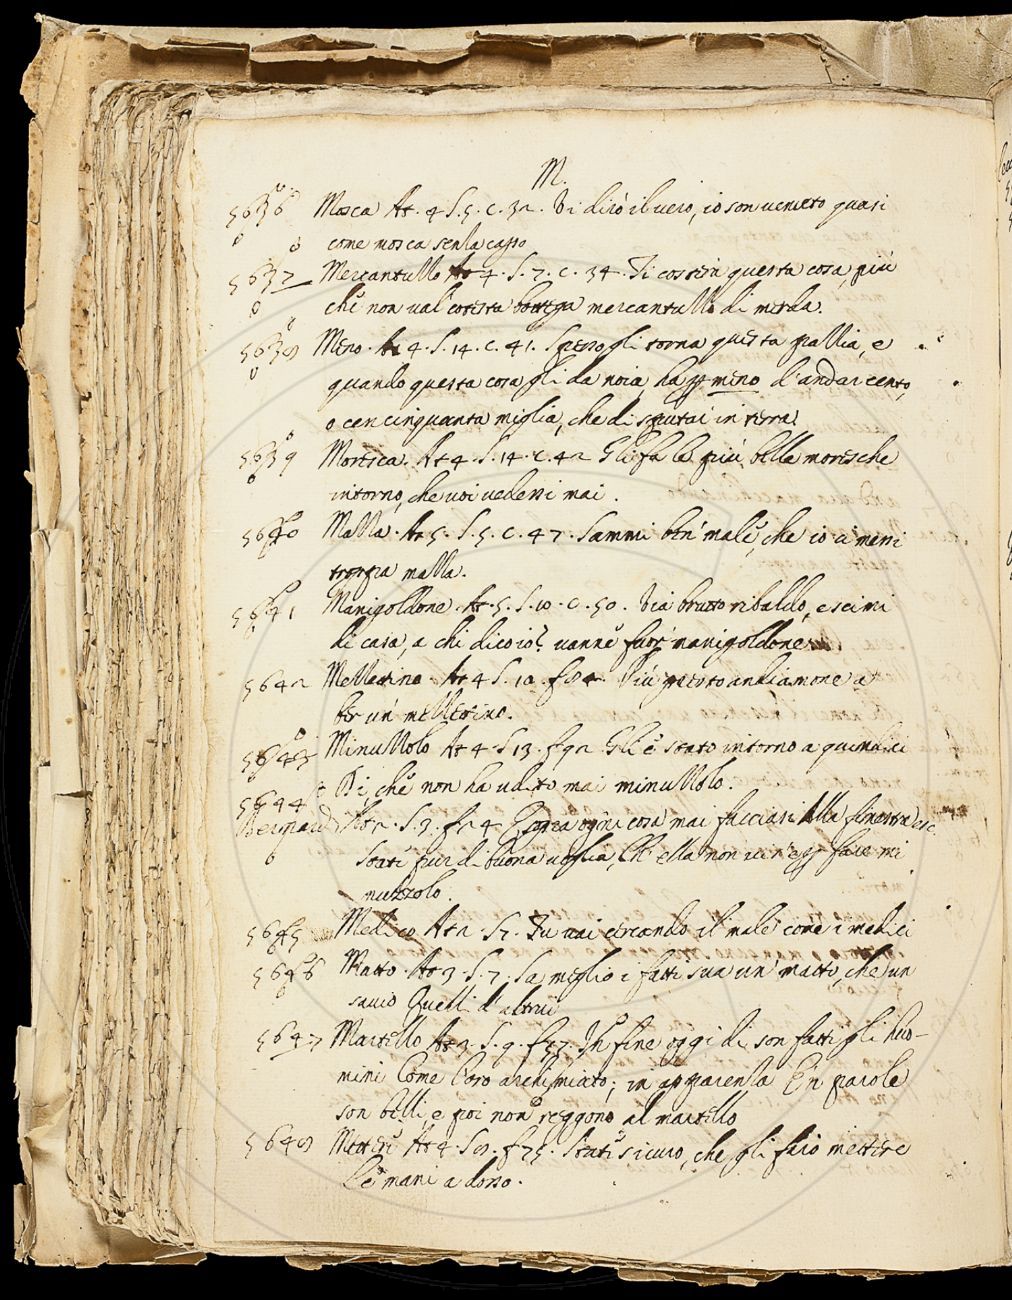 M.
5636 Mosca At. 4 S. 5. c. 32. Vi dirò il vero, io son venuto quasi
come mosca senza capo
5637 Mercantuzzo At 4. S. 7. c. 34. Ti costerà questa cosa, più
che non val cotesta bottega mercantuzzo di merda.
5638 Meno. At 4. S. 14. c. 41. Spesso gli torna questa pazzia, e
quando questa cosa gli da noia ha meno d'andar cento,
o cencinquanta miglia, che di sputar in terra
5639 Moresca. At 4. S. 14. c. 42 Gli fa le più belle moresche
intorno, che voi vedessi mai.
5640 Mazza. At 5. S. 5. c. 47. Sammi ben male, che io ci meni
troppa mazza.
5641 Manigoldone. At. 5. S. 10. c. 50. Via brutto ribaldo, escimi
di casa, a chi dico io? vanne fuor manigoldone
5642 Mezzetino. At 4 S. 10. Più presto andiamone a
ber un mezzetino.
5643 Minuzzolo At 4 S 13. f 92 Gli è stato intorno a quindici
Dì che non ha udito mai minuzzolo.
5644 At 2. S. 3. f 24 Sopra ogni cosa mai facciasi alla finestra
buona voglia, Ch' ella non
muzzolo.
5645 Medico At 2. S. Tu vai cercando il male come i medici
5646 Matto. At 3. S. 7. Sa meglio i fatti sua un matto, che un
savio Quelli d'altrui
5647 Martello At 3. S. 9. f 57. In fine oggi di son fatti gli huo-
mini Come l'oro archimiato; in apparenza En parole
son belli e poi non reggono al martello
5648 Mettere At 4. S. f 75. State sicuro, che gli farò mettere
Le mani a dosso.